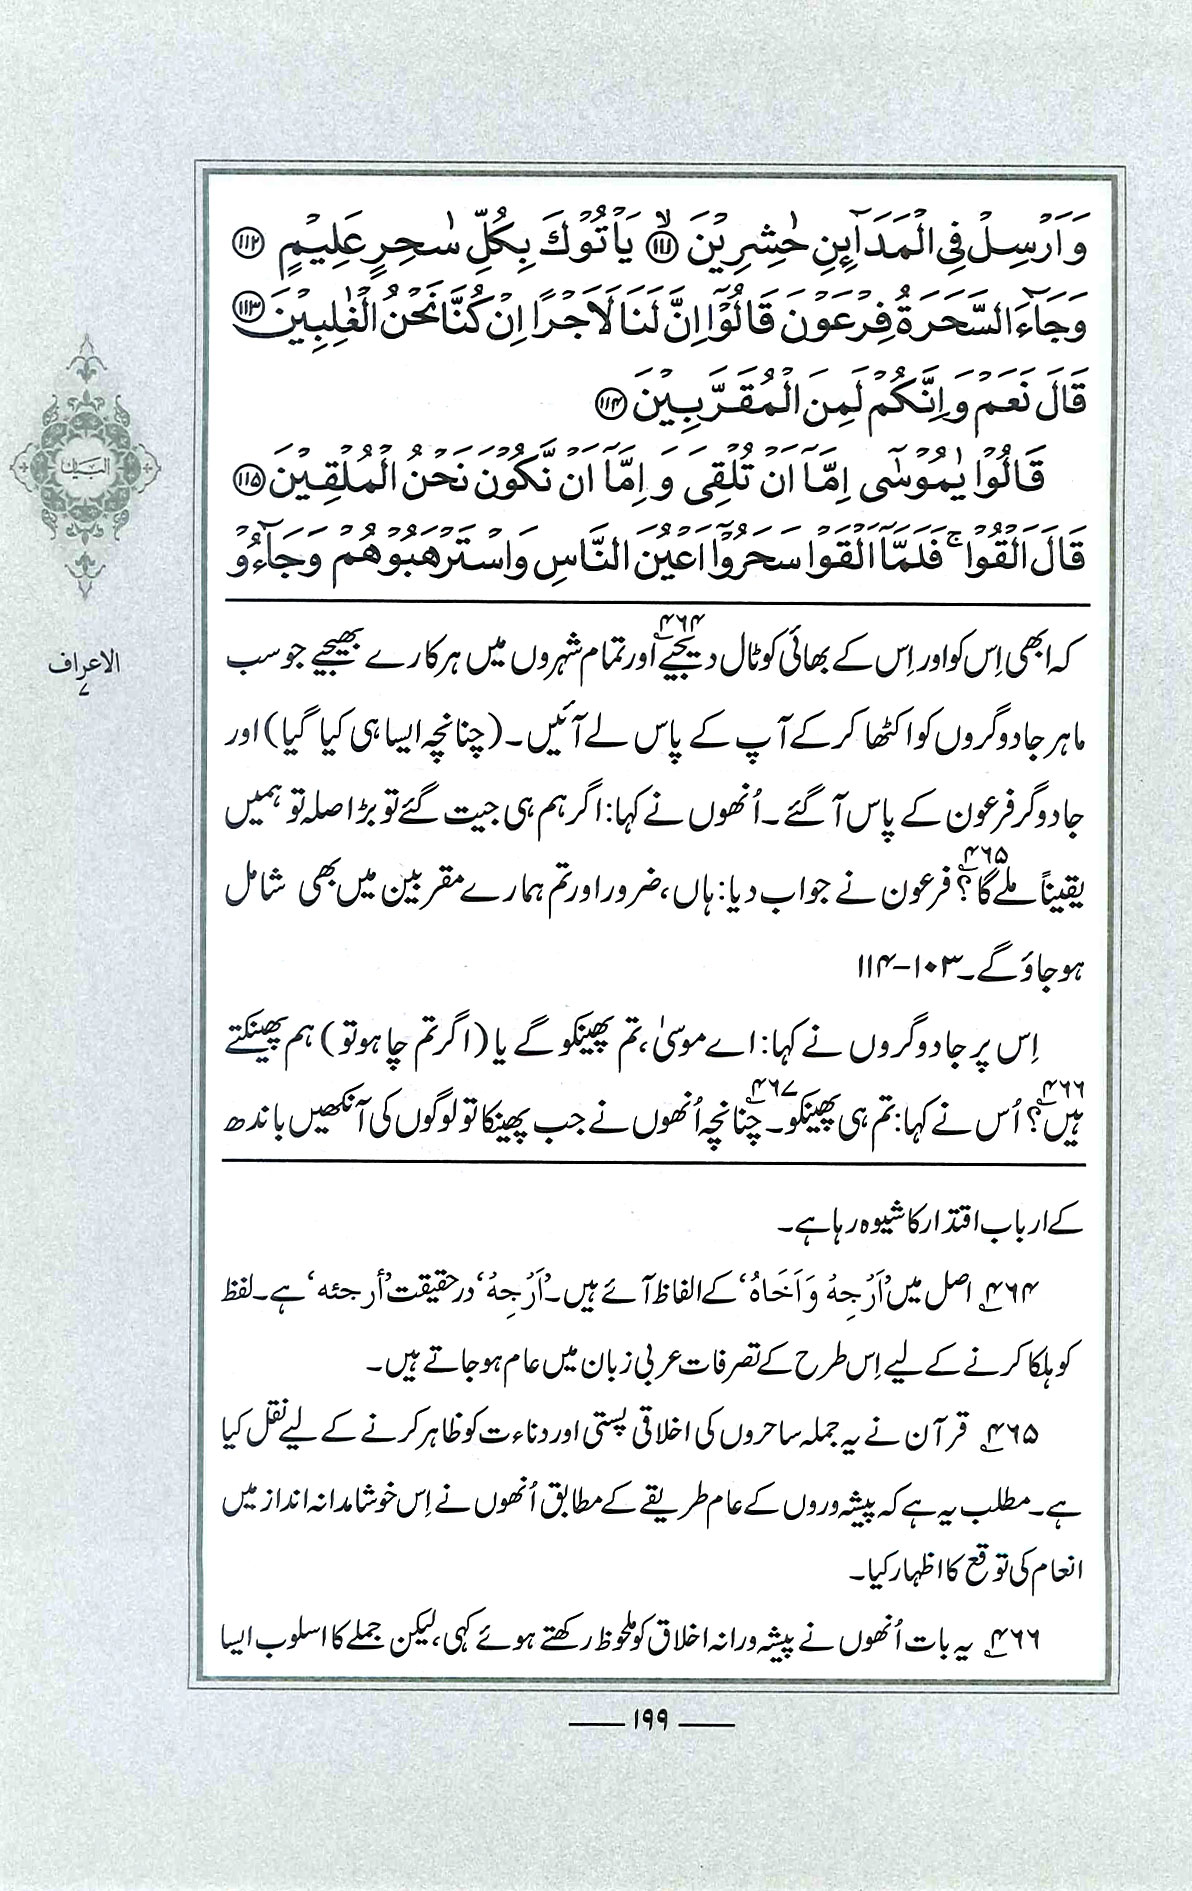 وَاَرْسِلْ فِي الْمَدَآئِنِ حٰشِرِيْنَ ﴿۱۱۱﴾ يَاْتُوْكَ بِكُلِّ سٰحِرٍ عَلِيْمٍ ﴿۱۱۲﴾
وَجَآءَ السَّحَرَةُ فِرْعَوْنَ قَالُوْٓا اِنَّ لَنَا لَاَجْرًا اِنْ كُنَّا نَحْنُ الْغٰلِبِيْنَ ﴿۱۱۳﴾
قَالَ نَعَمْ وَاِنَّكُمْ لَمِنَ الْمُقَرَّبِيْنَ ﴿۱۱۴﴾
قَالُوْا يٰمُوْسٰٓى اِمَّآ اَنْ تُلْقِىَ وَ اِمَّآ اَنْ نَّكُوْنَ نَحْنُ الْمُلْقِيْنَ ﴿۱۱۵﴾
قَالَ اَلْقُوْا ۚ فَلَمَّآ اَلْقَوْا سَحَرُوْٓا اَعْيُنَ النَّاسِ وَاسْتَرْهَبُوْهُمْ وَجَآءُوْ
کہ ابھی اِس کو اور اِس کے بھائی کو ٹال دیجیے۴۶۴ اور تمام شہروں میں ہرکارے بھیجیے جو سب
ماہر جادوگروں کو اکٹھا کر کے آپ کے پاس لے آئیں۔ (چنانچہ ایسا ہی کیا گیا) اور
جادوگر فرعون کے پاس آ گئے۔ اُنھوں نے کہا: اگر ہم ہی جیت گئے تو بڑا صلہ تو ہمیں
یقیناً ملے گا؟۴۶۵ فرعون نے جواب دیا: ہاں، ضرور اور تم ہمارے مقربین میں بھی شامل
ہو جاؤ گے۔ ۱۰۳-۱۱۴
اِس پر جادوگروں نے کہا: اے موسیٰ، تم پھینکو گے یا (اگر تم چاہو تو) ہم پھینکتے
ہیں؟۴۶۶ اُس نے کہا: تم ہی پھینکو۔۴۶۷ چنانچہ اُنھوں نے جب پھینکا تو لوگوں کی آنکھیں باندھ
کے ارباب اقتدار کا شیوہ رہا ہے۔
۴۶۴ اصل میں ’اَرْجِهْ وَاَخَاهُ‘ کے الفاظ آئے ہیں۔ ’اَرْجِهْ‘ در حقیقت ’أرجئه‘ ہے۔ لفظ
کو ہلکا کرنے کے لیے اِس طرح کے تصرفات عربی زبان میں عام ہو جاتے ہیں۔
۴۶۵ قرآن نے یہ جملہ ساحروں کی اخلاقی پستی اور دناءت کو ظاہر کرنے کے لیے نقل کیا
ہے۔ مطلب یہ ہے کہ پیشہ وروں کے عام طریقے کے مطابق اُنھوں نے اِس خوشامدانہ انداز میں
انعام کی توقع کا اظہار کیا۔
۴۶۶ یہ بات اُنھوں نے پیشہ ورانہ اخلاق کو ملحوظ رکھتے ہوئے کہی، لیکن جملے کا اسلوب ایسا
البیان
الاعراف
۷
۱۹۹